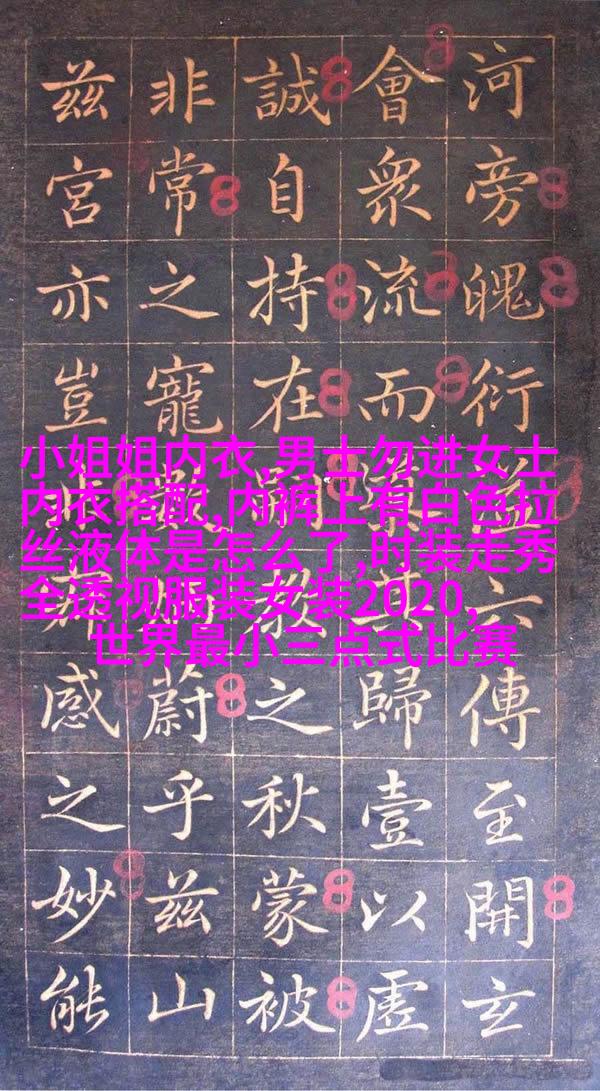 河旁魄衍益六傳至開玄
會眾流而其歸壹以虛
誠自持在嗣教之秋蒙被
非常之寵蔚乎茲山
茲宮亦豈感之妙能
小姐姐内衣,男士勿进女士
内衣搭配,内裤上有白色拉
丝液体是怎么了,时装走秀
全透视服装女装2020,
世界最小三点式比赛